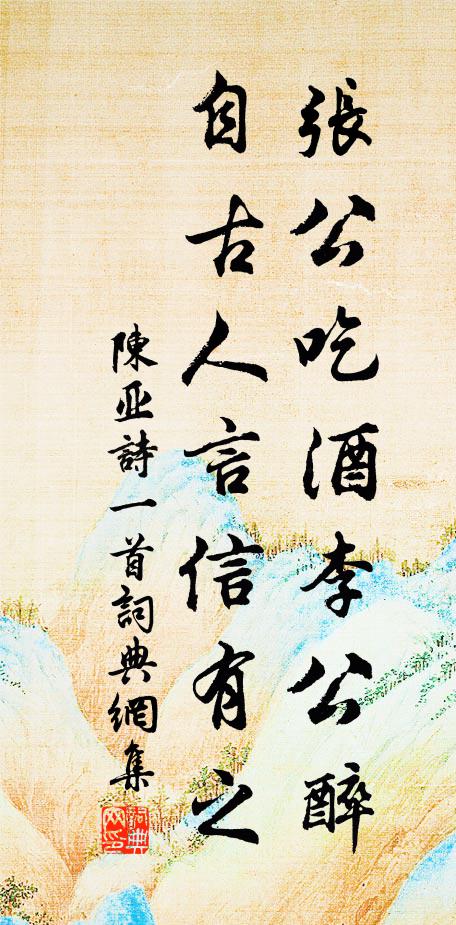 張公吃酒李公醉
自古人言信有之
陳亚詩一首詞典網集
詞典